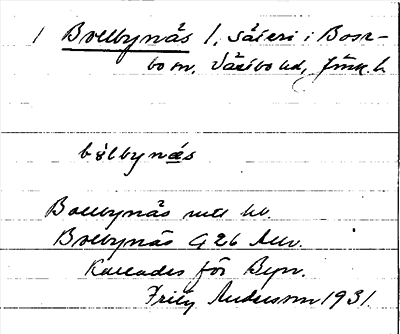 1 Bollbynäs 1, säteri i Bosebo sn, Västbo hd, Jönk. l.
bòlbynǽs
Bollbynäs
Bollbynäs G 26
Kallades för Byn.
Fritz Andersson 1931.